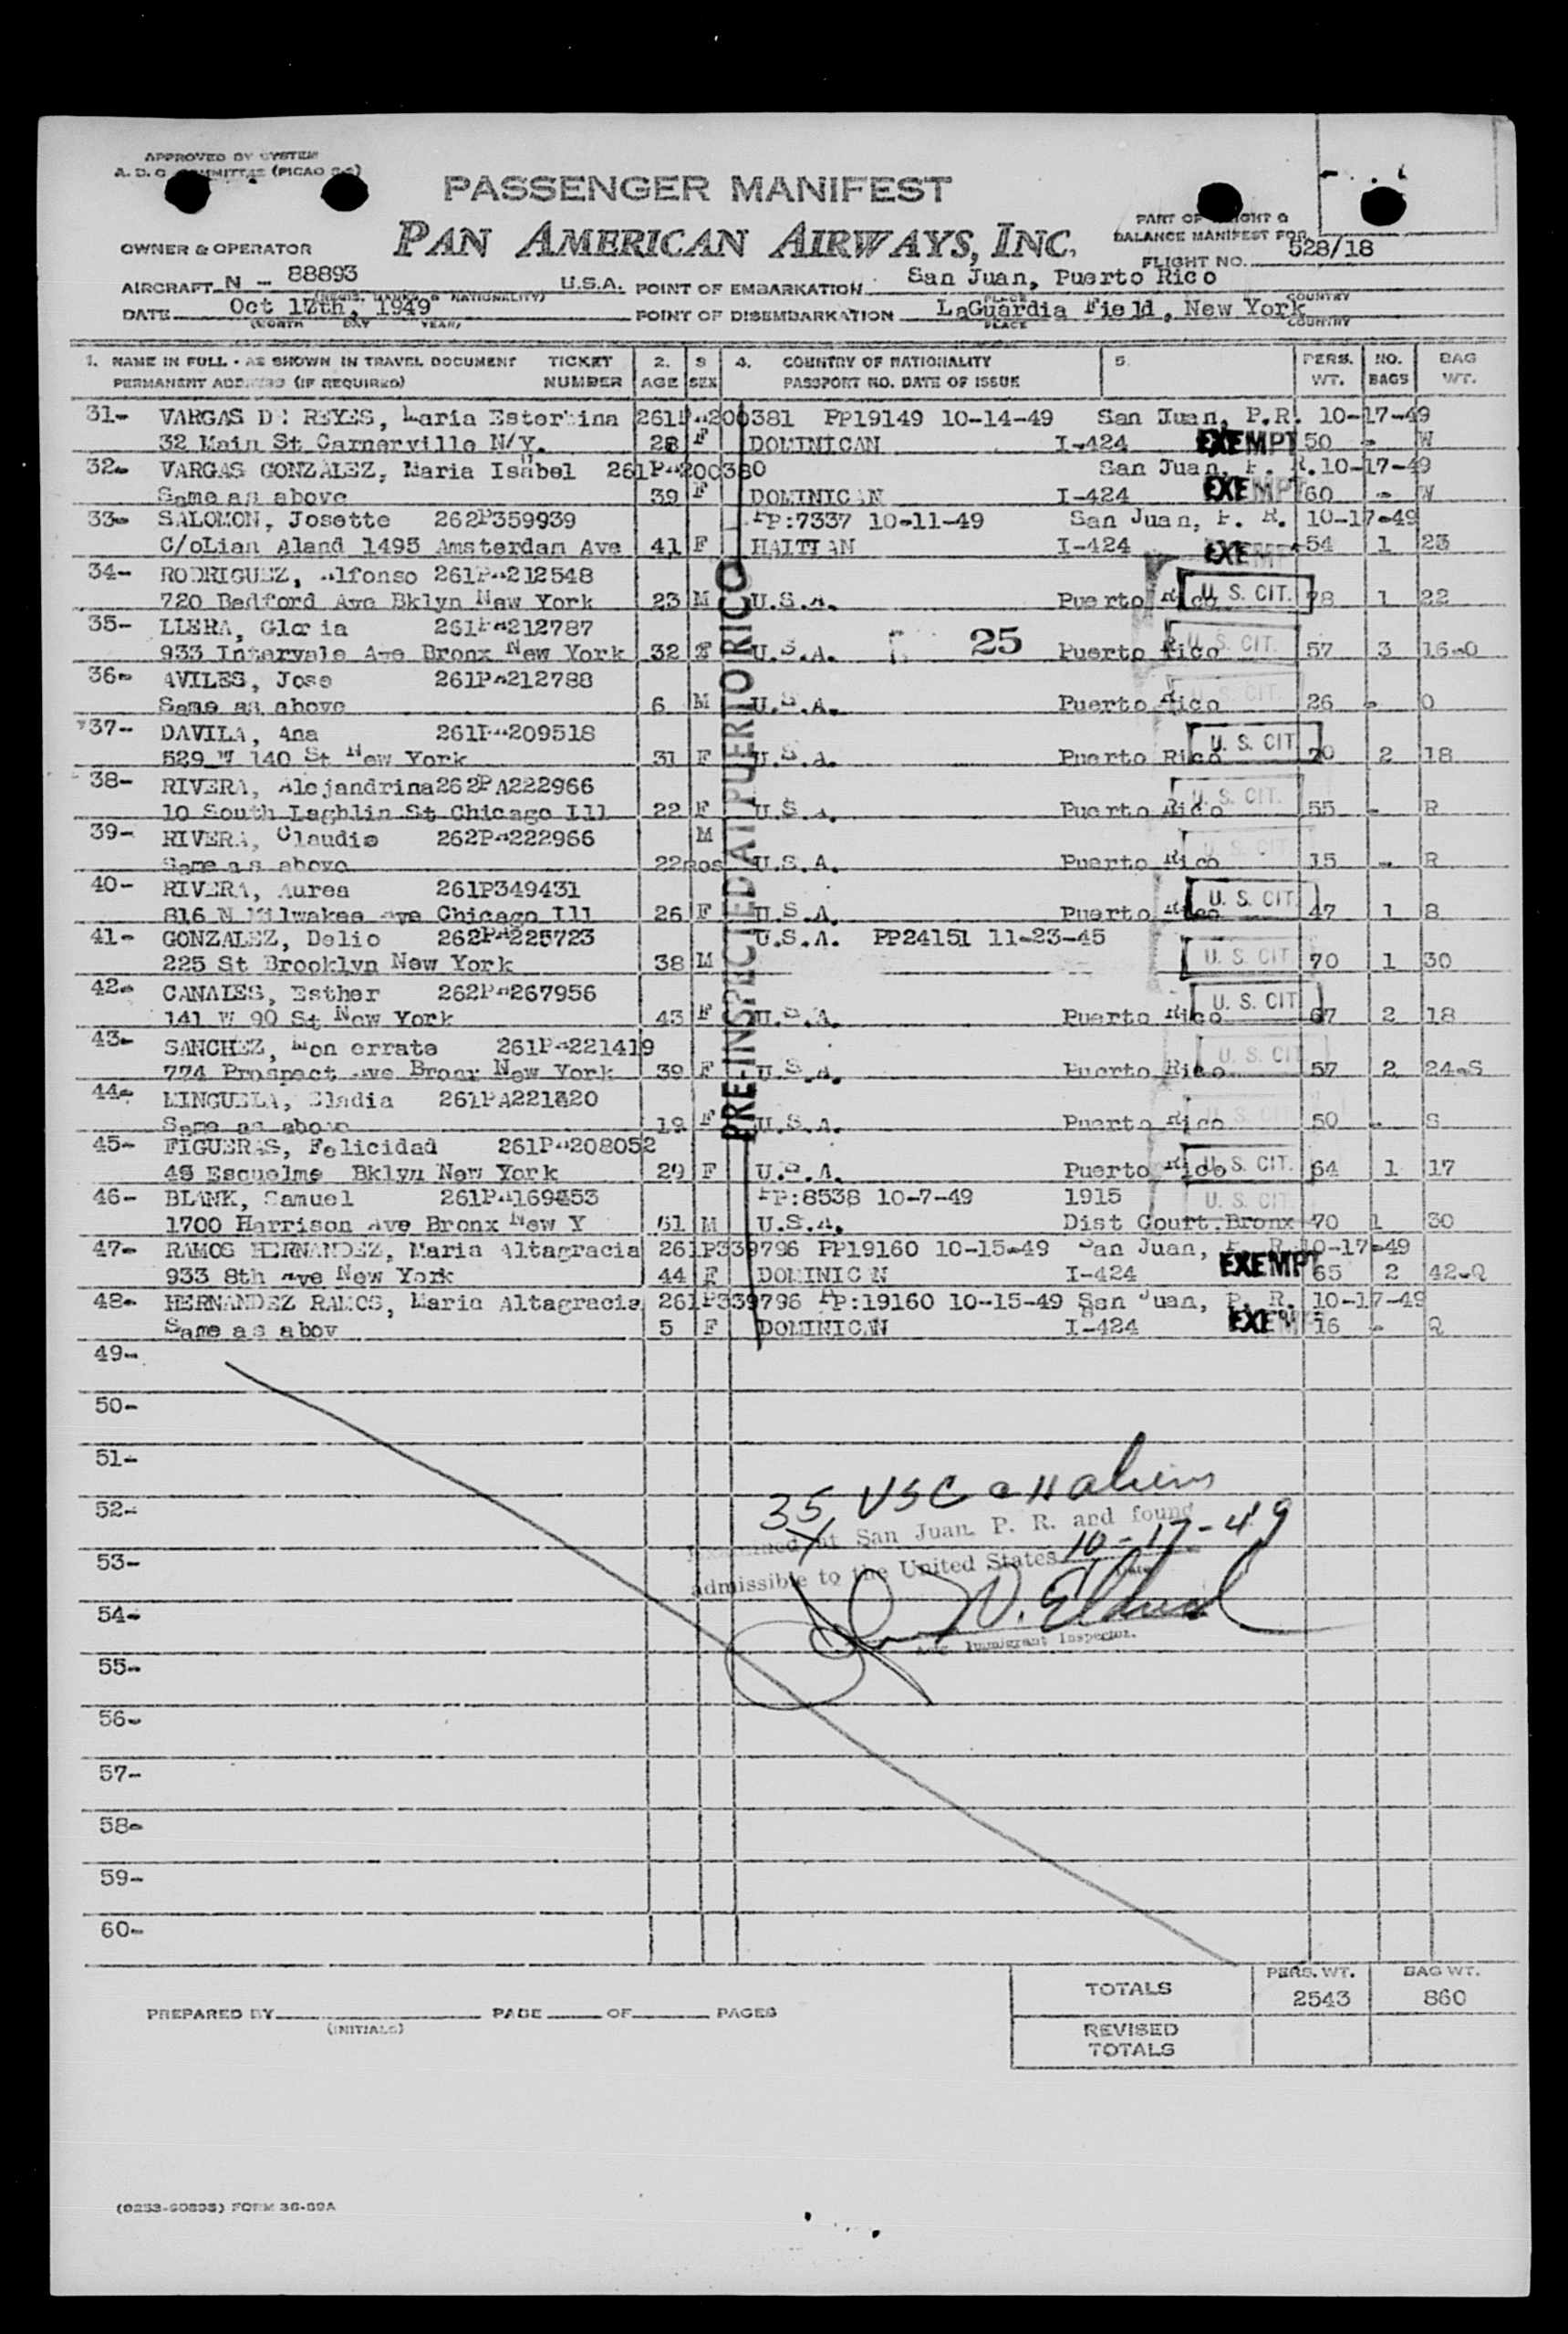 APPROVED BY SYSTEM
A. D. C. COMMITTEE (PICAO
PASSENGER MANIFEST
PAN AMERICAN AIRWAYS, INC.
PART OF WEIGHT &
BALANCE MANIFEST FOR
FLIGHT NO. 528/18
OWNER & OPERATOR
AIRCRAFT N - 88893 U.S.A. POINT OF EMBARKATION San Juan, Puerto Rico
(REGIS. MARKS & NATIONALITY) PLACE COUNTRY
DATE Oct 17th, 1949 POINT OF DISEMBARKATION LaGuardia Field, New York
(MONTH DAY YEAR) PLACE COUNTRY
1. NAME IN FULL - AS SHOWN IN TRAVEL DOCUMENT TICKET 2. 3 4. COUNTRY OF NATIONALITY 5. PERS. NO. BAG
PERMANENT ADDRESS (IF REQUIRED) NUMBER AGE SEX PASSPORT NO. DATE OF ISSUE WT. BAGS WT.
31- VARGAS DE REYES, Maria Ester ina 261PA200381 PP19149 10-14-49 San Juan, P.R. 10-17-49
32 Main St Carnerville N/Y. 28 F DOMINICAN I-424 EXEMPT 50 - W
32- VARGAS GONZALEZ, Maria Isabel 261PA200380 San Juan, P. R. 10-17-49
Same as above 39 F DOMINICAN I-424 EXEMPT 60 - W
33- SALOMON, Josette 262P359939 PP:7337 10-11-49 San Juan, P. R. 10-17-49
C/oLian Aland 1495 Amsterdam Ave 41 F HAITIAN I-424 EXEMPT 54 1 23
34- RODRIGUEZ, Alfonso 261PA212548
720 Bedford Ave Bklyn New York 23 M U.S.A. Puerto Rico U. S. CIT. 78 1 22
35- LLERA, Gloria 261PA212787
933 Intervale Ave Bronx New York 32 F U.S.A. 25 Puerto Rico U. S. CIT. 57 3 16-O
36- AVILES, Jose 261PA212788
Same as above 6 M U.S.A. Puerto Rico U. S. CIT. 26 - O
37- DAVILA, Ana 261PA209518
529 W 140 St New York 31 F U.S.A. Puerto Rico U. S. CIT 70 2 18
38- RIVERA, Alejandrina 262PA222966
10 South Laghlin St Chicago Ill 22 F U.S.A. Puerto Rico U. S. CIT. 55 - R
39- RIVERA, Claudio 262PA222966 M
Same as above 22mos U.S.A. Puerto Rico U. S. CIT 15 - R
40- RIVERA, Aurea 261P349431
816 N Milwakee Ave Chicago Ill 26 F U.S.A. Puerto Rico U. S. CIT. 47 1 8
41- GONZALEZ, Delio 262PA225723 U.S.A. PP24151 11-23-45
225 St Brooklyn New York 38 M U. S. CIT 70 1 30
42- CANALES, Esther 262PA267956
141 W 90 St New York 43 F U.S.A. Puerto Rico U. S. CIT 67 2 18
43- SANCHEZ, Mon errate 261PA221419
774 Prospect Ave Bronx New York 39 F U.S.A. Puerto Rico U. S. CIT 57 2 24-S
44- MINGUELA, Eladia
Same as above 19 F U.S.A. Puerto Rico U. S. CIT 50 - S
45- FIGUERAS, Felicidad 261PA208052
Bklyn New York 29 F U.S.A. Puerto Rico U. S. CIT. 64 1 17
46- BLANK, Samuel PP:8538 10-7-49 1915 U. S. CIT.
1700 Harrison Ave Bronx New Y 61 M U.S.A. Dist Court.Bronx 70 1 30
47- RAMOS HERNANDEZ, Maria Altagracia 261P339796 PP19160 10-15-49 San Juan, P. R. 10-17-49
933 8th Ave New York 44 F DOMINICAN I-424 EXEMPT 65 2 42-Q
48- HERNANDEZ RAMOS, Maria Altagracia 261P339796 PP:19160 10-15-49 San Juan, P. R. 10-17-49
Same as abov 5 F DOMINICAN I-424 EXEMPT 16 - Q
PRE-INSPECTED AT PUERTO RICO
49-
50-
51-
52-
53-
54-
55-
56-
57-
58-
59-
60-
35 USC aliens
Examined at San Juan, P. R. and found
admissible to the United States 10-17-49
Immigrant Inspector.
TOTALS PERS. WT. 2543 BAG WT. 860
PREPARED BY PAGE OF PAGES
(INITIALS)
REVISED
TOTALS
FORM 36-89A